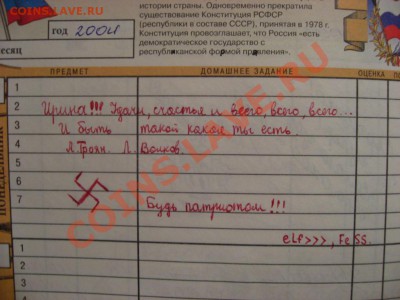 COINS.LAVE.RU
истории страны. Одновременно прекратила
существование Конституция РСФСР
(республики в составе СССР), принятая в 1978 г.
Конституция провозглашает, что Россия «есть
демократическое государство с
республиканской формой правления».
год 2004
месяц
ПРЕДМЕТ ДОМАШНЕЕ ЗАДАНИЕ ОЦЕНКА
1
2 Ирина!!! Удачи, счастья и всего, всего, всего...
3 И быть такой какая ты есть.
4 Л. Волков.
5
6
7 Будь патриотом!!!
elf>>>, FeSS.
ПОНЕДЕЛЬНИК
1
2
COINS.LAVE.RU
COINS.LAVE.RU